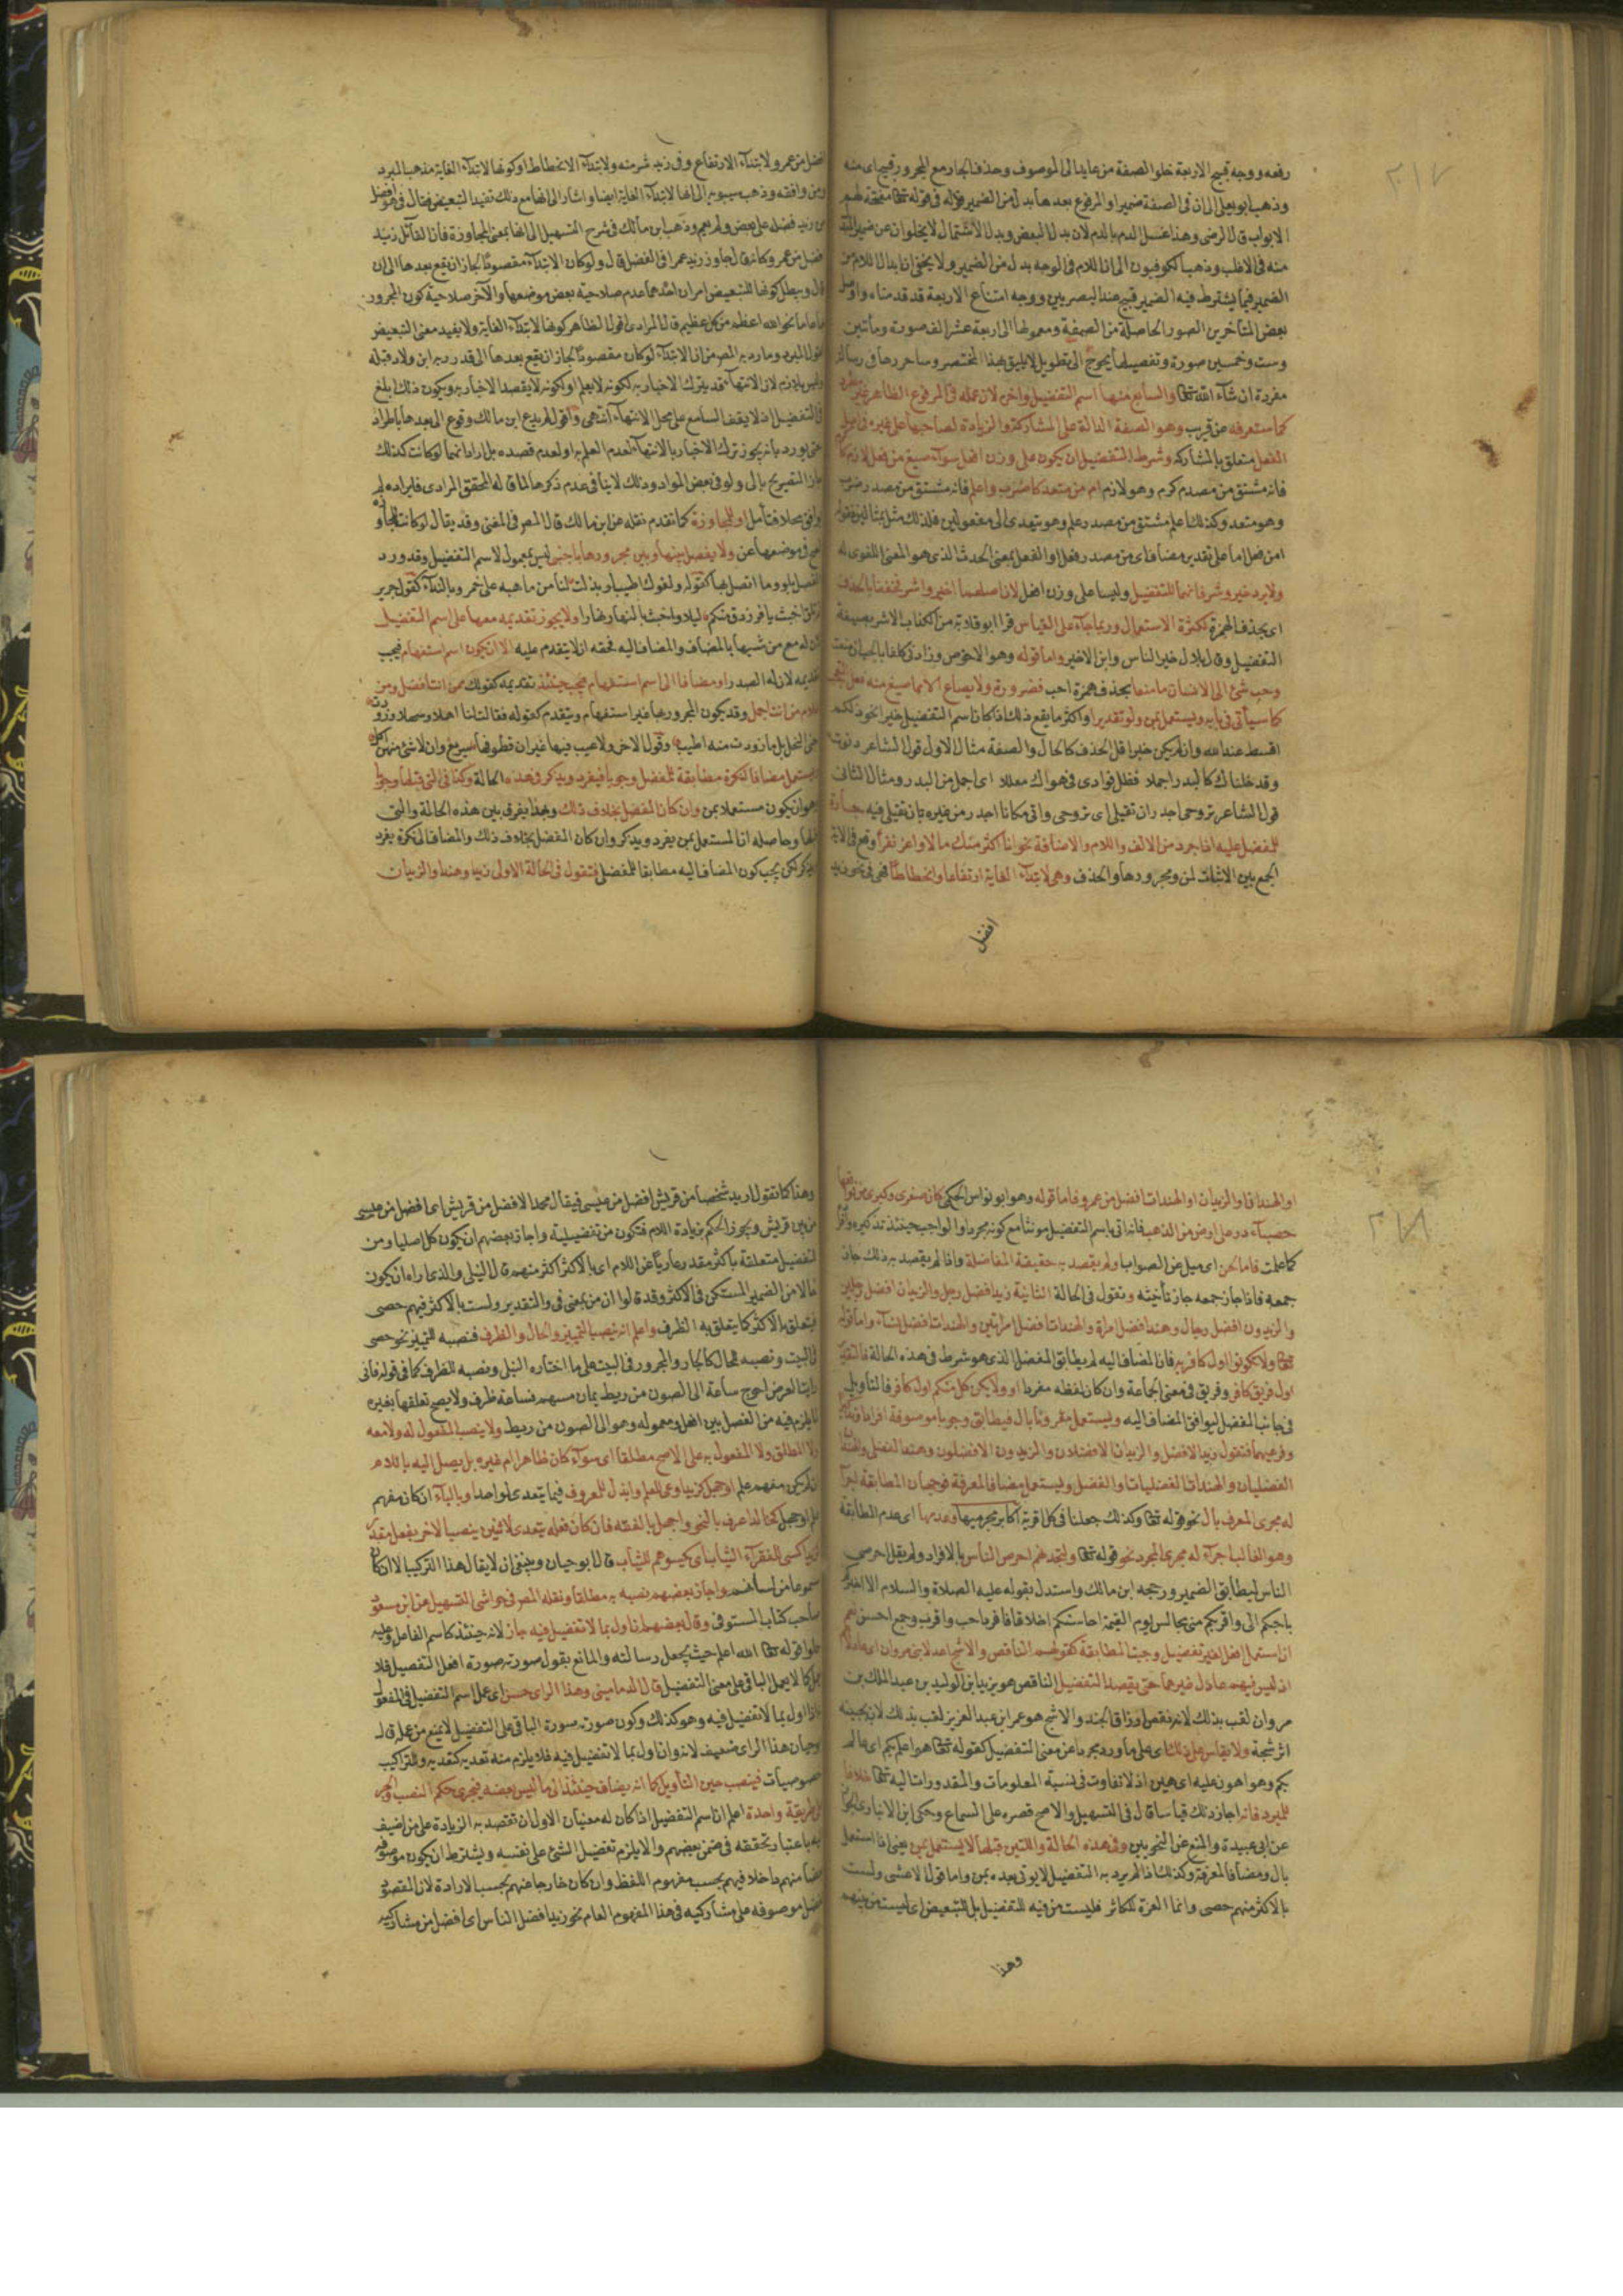 ٢١٧
رفعه ووجه قبح الاربعة خلوا الصفة من عايد الى الموصوف وحذف الجار مع المجرور قبيح اى منه
وذهب ابو على الى ان فى الصفة ضميرا والمرفوع بعدها بدل من الضمير فى قوله تعالى مفتحة لهم
الابواب قال الرضى وهذا غسل الدم بالدم لان بدل البعض وبدل الاشتمال لا يخلوان عن ضمير المبدل
منه فى الاغلب وذهب الكوفيون الى ان اللام فى الوجه بدل من الضمير ولا يخفى ان ابدال اللام من
الضمير فيما يشترط فيه الضمير قبيح عند البصريين ووجه امتناع الاربعة قد قدمناه واوصل
بعض المتأخرين الصور الحاصلة من الصفة ومعمولها الى اربعة عشر الف صورة ومأتين
وست وخمسين صورة وتفصيلها يحوج الى تطويل لا يليق بهذا المختصر وساحررها فى رسالة
مفردة ان شاء الله تعالى والسابع منها اسم التفضيل واخر لان عمله فى المرفوع الظاهر غير مطرد
كما ستعرفه عن قريب وهو الصفة الدالة على المشاركة والزيادة لصاحبها على غيره فى اصل
الفعل متعلق بالمشاركة وشرط التفضيل ان يكون على وزن افعل سواء صيغ من فعل لازم كاكرم
فانه مشتق من مصدر كرم وهو لازم ام من متعد كاضرب واعلم فانه مشتق من مصدر ضرب
وهو متعد وكذلك اعلم مشتق من مصدر علم وهو يتعدى الى مفعولين فلذلك مثل بمثالين فقوله
من فعل اما على تقدير مضاف اى من مصدر فعل او الفعل بمعنى الحدث الذى هو المعنى اللغوى له
ولا يرد خير وشر فانهما للتفضيل وليسا على وزن افعل لان اصلهما اخير واشر فخففا بالحذف
اى بحذف الهمزة لكثرة الاستعمال وربما جاء على القياس قرا ابو قلابة من الكذاب الاشر بصيغة
التفضيل وقال بلال خير الناس وابن الاخير واما قوله وهو الاخوص وزادنى كلفا بالحب ان منعت
وحب شئ الى الانسان ما منعا بحذف همزة احب فضرورة ولا يصاغ الا مما صيغ منه فعل التعجب
كما سياتى فى بابه ويستعمل بمن ولو تقديرا واكثر ما يقع ذلك اذا كان اسم التفضيل خبرا نحو ذلكم
اقسط عند الله وان لم يكن خبرا قل الحذف كالحال والصفة مثال الاول قول الشاعر دنوت
وقد خلناك كالبدر اجملا فظل فوادى فى هواك مضللا اى اجمل من البدر ومثال الثانى
قول الشاعر تروحى اجدر ان تقيلى اى تروحى واتى مكانا اجدر من غيره بان تقيلى فيه جارة
للمفضل عليه اذا جرد من الالف واللام والاضافة نحو انا اكثر منك مالا واعز نفرا وقع فى الاية
الجمع بين الاثبات لمن ومجرورها والحذف وهى لابتداء الغاية ارتفاعا وانحطاطا فهى فى نحو زيد
افضل
افضل من عمرو لابتداء الارتفاع وفى زيد شر منه ولابتداء الانحطاط وكونها لابتداء الغاية مذهب المبرد
ومن وافقه وذهب سيبويه الى انها لابتداء الغاية ايضا واشار الى انها مع ذلك تفيد التبعيض فقال فى هو افضل
من زيد فضله على بعض ولم يعم وذهب ابن مالك فى شرح التسهيل الى انها بمعنى المجاوزة فان القائل زيد
افضل من عمرو كانه قال جاوز زيد عمرا فى الفضل قال ولو كان الابتداء مقصودا لجاز ان يقع بعدها الى ان
قال ويبطل كونها للتبعيض امران احدهما عدم صلاحية بعض موضعها والآخر صلاحية كون المجرور
عاما نحو الله اعظم من كل عظيم قال المرادى اقول الظاهر كونها لابتداء الغاية ولا يفيد معنى التبعيض
لقول المبرد وما رد به المص من ان الابتداء لو كان مقصودا لجاز ان يقع بعدها الى قد رد به ابن ولاد قبله
وليس بلازم لان الانتهاء قد يترك الاخبار به لكونه لا يعلم او لكونه لا يقصد الاخبار به ويكون ذلك ابلغ
فى التفضيل اذ لا يقف السامع على محل الانتهاء انتهى واقول لم يدع ابن مالك وقوع الى بعدها باطراد
حتى يورد بانه يجوز ترك الاخبار بالانتهاء لعدم العلم به او لعدم قصده بل اراد انها لو كانت كذلك
لجاز التصريح بالى ولو فى بعض المواد وذلك لا ينافى عدم ذكرها لما قاله المحقق المرادى فايراده لم
يوافق محلا فتأمل او للمجاوزة كما تقدم نقله عن ابن مالك قال المص فى المغنى وقد يقال لو كانت للمجاوزة
لصح فى موضعها عن ولا يفصل بينها وبين مجرورها باجنبى ليس بمعمول لاسم التفضيل وقد ورد
الفصل بلو وما اتصل بها كقوله ولفوك اطيب لو بذلت لنا من ماء موهبة على خمر وبالنداء كقول جرير
لم الق اخبث يا فرزدق منكم ليلا واخبث بالنهار نهارا ولا يجوز تقديمه معها على اسم التفضيل
لانه مع من شبيها بالمضاف والمضاف اليه فحقه ان لا يتقدم عليه الا ان يكون اسم استفهام فيجب
تقديمه لان له الصدر او مضافا الى اسم استفهام فيجب حينئذ تقديمه كقولك ممن انت افضل ومن
غلام من انت اجمل وقد يكون المجرور بها غير استفهام ويتقدم كقوله فقالت لنا اهلا وسهلا وزودت
جنى النحل بل ما زودت منه اطيب وقول الاخر ولا عيب فيها غير ان قطوفها سريع وان لا شئ منهن اكسل
ويستعمل مضافا لنكرة مطابقة للمفضل وجوبا فيفرد ويذكر فى هذه الحالة وكذا فى التى قبلها وجوبا
وهو ان يكون مستعملا بمن وان كان المفضل بخلاف ذلك وبهذا يفرق بين هذه الحالة والتى
قبلها وحاصله ان المستعمل بمن يفرد ويذكر وان كان المفضل بخلاف ذلك والمضاف لنكرة يفرد
ويذكر لكن يجب كون المضاف اليه مطابقا للمفضل فتقول فى الحالة الاولى زيد او هند او الزيدان
٢١٨
او الهندان او الزيدان او الهندات افضل من عمرو فاما قوله وهو ابو نواس الحكمى كان صغرى وكبرى من فواقعها
حصباء در على ارض من الذهب فانه اتى باسم التفضيل مونثا مع كونه مجردا والواجب حينئذ تذكيره وافراده
كما علمت فاما لحن اى ميل عن الصواب او لم يقصد به حقيقة المفاضلة واذا لم يقصد به ذلك جاز
جمعه فاذا جاز جمعه جاز تأنيثه وتقول فى الحالة الثانية زيد افضل رجل والزيدان افضل رجلين
والزيدون افضل رجال وهند افضل امراة والهندات افضل امراتين والهندات افضل نساء واما قوله
تعالى ولا تكونوا اول كافر به فان المضاف اليه لم يطابق المفضل الذى هو شرط فى هذه الحالة فالتقدير
اول فريق كافر وفريق فى معنى الجماعة وان كان لفظه مفردا او ولا يكن كل منكم اول كافر فالتأويل
فى جانب المفضل ليوافق المضاف اليه ويستعمل مقرونا بال فيطابق وجوبا موصوفه افرادا وتذكيرا
وفرعيهما فتقول زيد الافضل والزيدان الافضلان والزيدون الافضلون وهند الفضلى والهندان
الفضليان والهندات الفضليات والفضل ويستعمل مضافا لمعرفة فوجهان المطابقة اجراء
له مجرى المعرف بال نحو قوله تعالى وكذلك جعلنا فى كل قرية اكابر مجرميها وعدمها اى عدم المطابقة
وهو الغالب اجراء له مجرى المجرد نحو قوله تعالى ولتجدنهم احرص الناس بالافراد ولم يقل احرصى
الناس ليطابق الضمير ورجحه ابن مالك واستدل بقوله عليه الصلاة والسلام الا اخبركم
باحبكم الى واقربكم منى مجالس يوم القيمة احاسنكم اخلاقا فافرد احب واقرب وجمع احسن نعم
ان استعمل افعل لغير تفضيل وجبت المطابقة كقولهم الناقص والاشج اعدلا بنى مروان اى عادلاهم
اذ ليس فيهم عادل غيرهما حتى يقصد التفضيل الناقص هو يزيد ابن الوليد بن عبد الملك بن
مروان لقب بذلك لانه نقص ارزاق الجند والاشج هو عمر ابن عبد العزيز لقب بذلك لان بجبينه
اثر شجة ولا يقاس على ذلك اى على ما ورد مجردا عن معنى التفضيل كقوله تعالى هو اعلم بكم اى عالم
بكم وهو اهون عليه اى هين اذ لا تفاوت فى نسبة المعلومات والمقدورات اليه تعالى خلافا
للمبرد فانه اجاز ذلك قياسا قال فى التسهيل والاصح قصره على السماع وحكى ابن الانبارى الجواز
عن ابى عبيدة والمنع عن النحويين وفى هذه الحالة والتين قبلها لا يستعمل بمن يعنى اذا استعمل
بال ومضافا لمعرفة وكذلك اذا لم يرد به التفضيل لا يوتى بعده بمن واما قول الاعشى ولست
بالاكثر منهم حصى وانما العزة للكاثر فليست من فيه للتفضيل بل للتبعيض اى لست من بينهم
وهذا
وهذا كما تقول اريد شخصا من قريش افضل من عيسى فيقال محمد الافضل من قريش اى افضل من عيسى
من بين قريش ويجوز الحكم بزيادة اللام فتكون من تفضيلية واجاز بعضهم ان يكون كل اصليا ومن
لتفضيل متعلقة باكثر مقدر عاريا عن اللام اى بالاكثر اكثر منهم قال النيلى والذى اراه ان يكون
حالا من الضمير المستكن فى الاكثر وقد قالوا ان من بمعنى فى والتقدير ولست بالاكثر فيهم حصى
فيتعلق بالاكثر كما يتعلق به الظرف واعلم انه ينصب التمييز والحال والظرف فنصبه للتمييز نحو حصى
فى البيت ونصبه للحال كالجار والمجرور فى البيت على ما اختاره النيلى ونصبه للظرف كما فى قوله فانى
رايت العرض احوج ساعة الى الصون من ريط يمان مسهم فساعة ظرف ولا يصح تعلقها بغيره
لما يلزم فيه من الفصل بين افعل ومعموله وهو الى الصون من ريط ولا ينصب المفعول له ولا معه
ولا المطلق ولا المفعول به على الاصح مطلقا اى سواء كان ظاهرا ام غيره بل يصل اليه باللام
ان لم يكن مفهم علم او جهل كزيد اوعى للعلم وابذل للمعروف فيما يتعدى لواحد او بالباء ان كان مفهم
علم او جهل كخالد اعرف بالنحو واجهل بالفقه فان كان فعله يتعدى لاثنين ينصب الاخر بفعل مقدر
كزيد اكسى للفقراء الثياب اى يكسوهم الثياب قال ابو حيان وينبغى ان لا يقال هذا التركيب الا ان كان
مسموعا من لسانهم واجاز بعضهم نصبه به مطلقا ونقله المص فى حواشى التسهيل عن ابن مسعود
صاحب كتاب المستوفى وقال بعضهم ان اول بما لا تفضيل فيه جاز لانه حينئذ كاسم الفاعل وعليه
حملوا قوله تعالى الله اعلم حيث يجعل رسالته والمانع يقول صورته صورة افعل التفضيل فلا
يعمل كما لا يعمل الباقى على معنى التفضيل قال الدمامينى وهذا الراى حسن اى عمل اسم التفضيل فى المفعول
اذا اول بما لا تفضيل فيه وهو كذلك وكون صورته صورة الباقى على التفضيل لا يمنع من عمله قال
ابو حيان هذا الراى ضعيف لانه وان اول بما لا تفضيل فيه فلا يلزم منه تعديه كتعديه وللتراكيب
خصوصيات فينصب حين التأويل كما انه يضاف حينئذ الى ما ليس بعضه فيجرى حكم النصب والجر
على طريقة واحدة اعلم ان اسم التفضيل اذا كان له معنيان الاول ان تقصد به الزيادة على من اضيف
اليه باعتبار تحققه فى ضمن بعضهم والا يلزم تفضيل الشئ على نفسه ويشترط ان يكون موصوفه
بعضا منهم داخلا فيهم بحسب مفهوم اللفظ وان كان خارجا عنهم بحسب الارادة لان المقصود
تفضيل موصوفه على مشاركيه فى هذا المفهوم العام نحو زيد افضل الناس اى افضل من مشاركيه